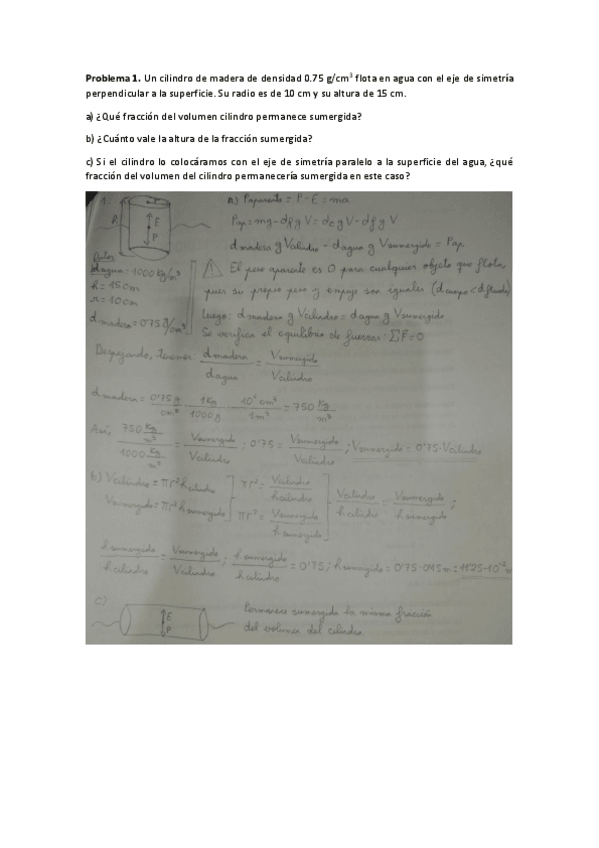 Problema 1. Un cilindro de madera de densidad 0.75 g/cm³ flota en agua con el eje de simetría
perpendicular a la superficie. Su radio es de 10 cm y su altura de 15 cm.
a) ¿Qué fracción del volumen cilindro permanece sumergida?
b) ¿Cuánto vale la altura de la fracción sumergida?
c) Si el cilindro lo colocáramos con el eje de simetría paralelo a la superficie del agua, ¿qué
fracción del volumen del cilindro permanecería sumergida en este caso?
1.
h
E
P
a) Paparente = P - E = ma
Pap = mg - df g V = dc g V - df g V
dmadera g Vcilindro - dagua g Vsumergido = Pap.
Datos
dagua: 1000 kg/m³
h = 15cm
r = 10cm
dmadera = 0'75 g/cm³
⚠ El peso aparente es 0 para cualquier objeto que flota,
pues su propio peso y empuje son iguales (dcuerpo < dfluido)
Luego: dmadera g Vcilindro = dagua g Vsumergido
Se verifica el equilibrio de fuerzas: ΣF = 0
Despejando, tenemos: dmadera / dagua = Vsumergido / Vcilindro
dmadera = 0'75 g / cm³ · 1 Kg / 1000 g · 10⁶ cm³ / 1 m³ = 750 Kg / m³
Así, 750 Kg/m³ / 1000 Kg/m³ = Vsumergido / Vcilindro ; 0'75 = Vsumergido / Vcilindro ; Vsumergido = 0'75 · Vcilindro
b) Vcilindro = πr² hcilindro ] πr² = Vcilindro / hcilindro
Vsumergido = πr² hsumergido ] πr² = Vsumergido / hsumergido
Vcilindro / hcilindro = Vsumergido / hsumergido ;
hsumergido / hcilindro = Vsumergido / Vcilindro ; hsumergido / hcilindro = 0'75 ; hsumergido = 0'75 · 0'15 m = 11'25 · 10⁻² m
c)
E
P
Permanece sumergida la misma fracción
del volumen del cilindro.